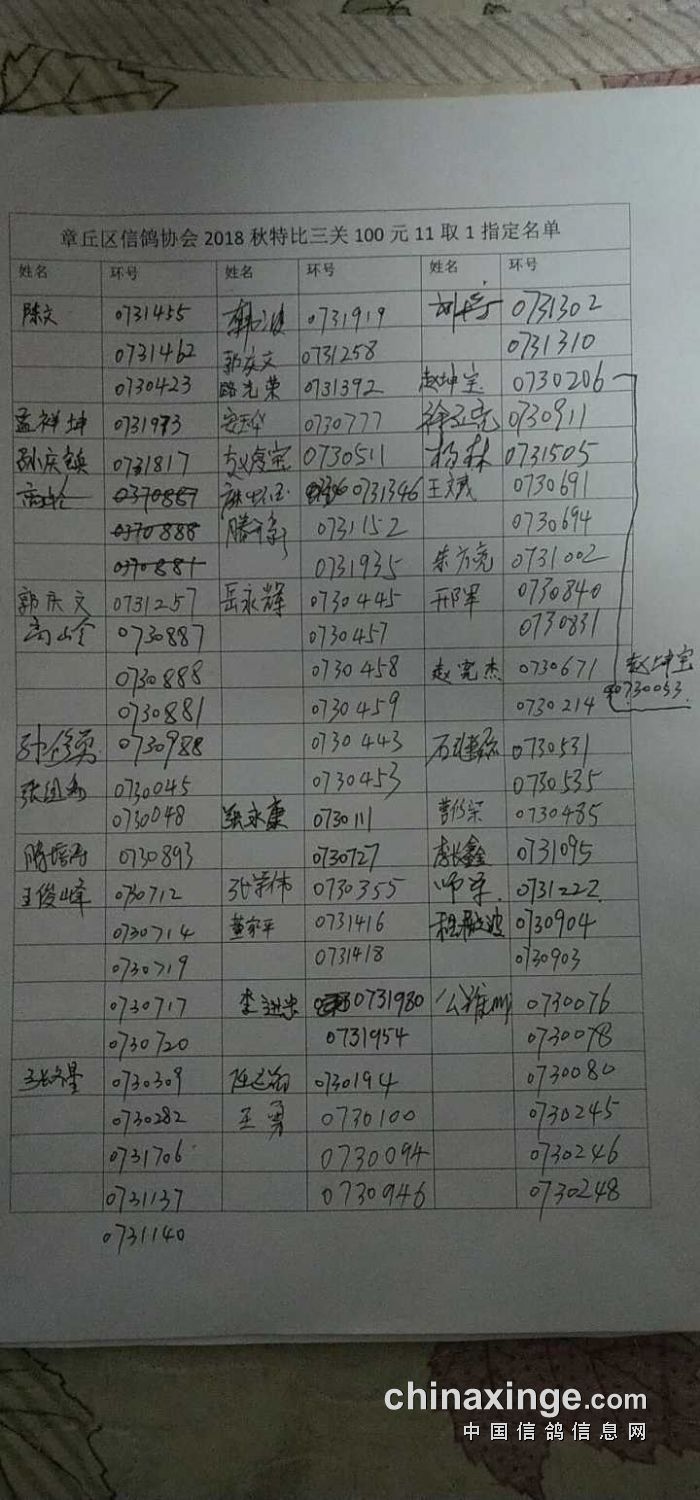 章丘区信鸽协会2018秋特比三关100元11取1指定名单
姓名 环号 姓名 环号 姓名 环号
陈文 0731455 0731919 0731302
0731462 郭庆文 0731258 0731310
0730423 路光荣 0731392 赵坤宝 0730206
孟祥坤 0731973 0730777 0730911
0731817 0730511 杨林 0731505
0370887 0731346 0730691
0370888 0731152 0730694
0370881 0731935 0731002
郭庆文 0731257 岳永辉 0730445 邢军 0730840
0730887 0730457 0730831
0730888 0730458 赵宪杰 0730671 赵坤宝
0730881 0730459 0730214 0730053
0730988 0730443 0730531
0730045 0730453 0730535
0730048 张永康 0730111 0730485
0730893 0730727 李长鑫 0731095
王俊峰 0730712 0730355 师军 0731222
0730714 董家平 0731416 0730904
0730719 0731418 0730903
0730717 0731980 0730076
0730720 0731954 0730078
0730309 0730194 0730080
0730282 王勇 0730100 0730245
0731706 0730094 0730246
0731137 0730946 0730248
0731140
chinaxinge.com
中国信鸽信息网